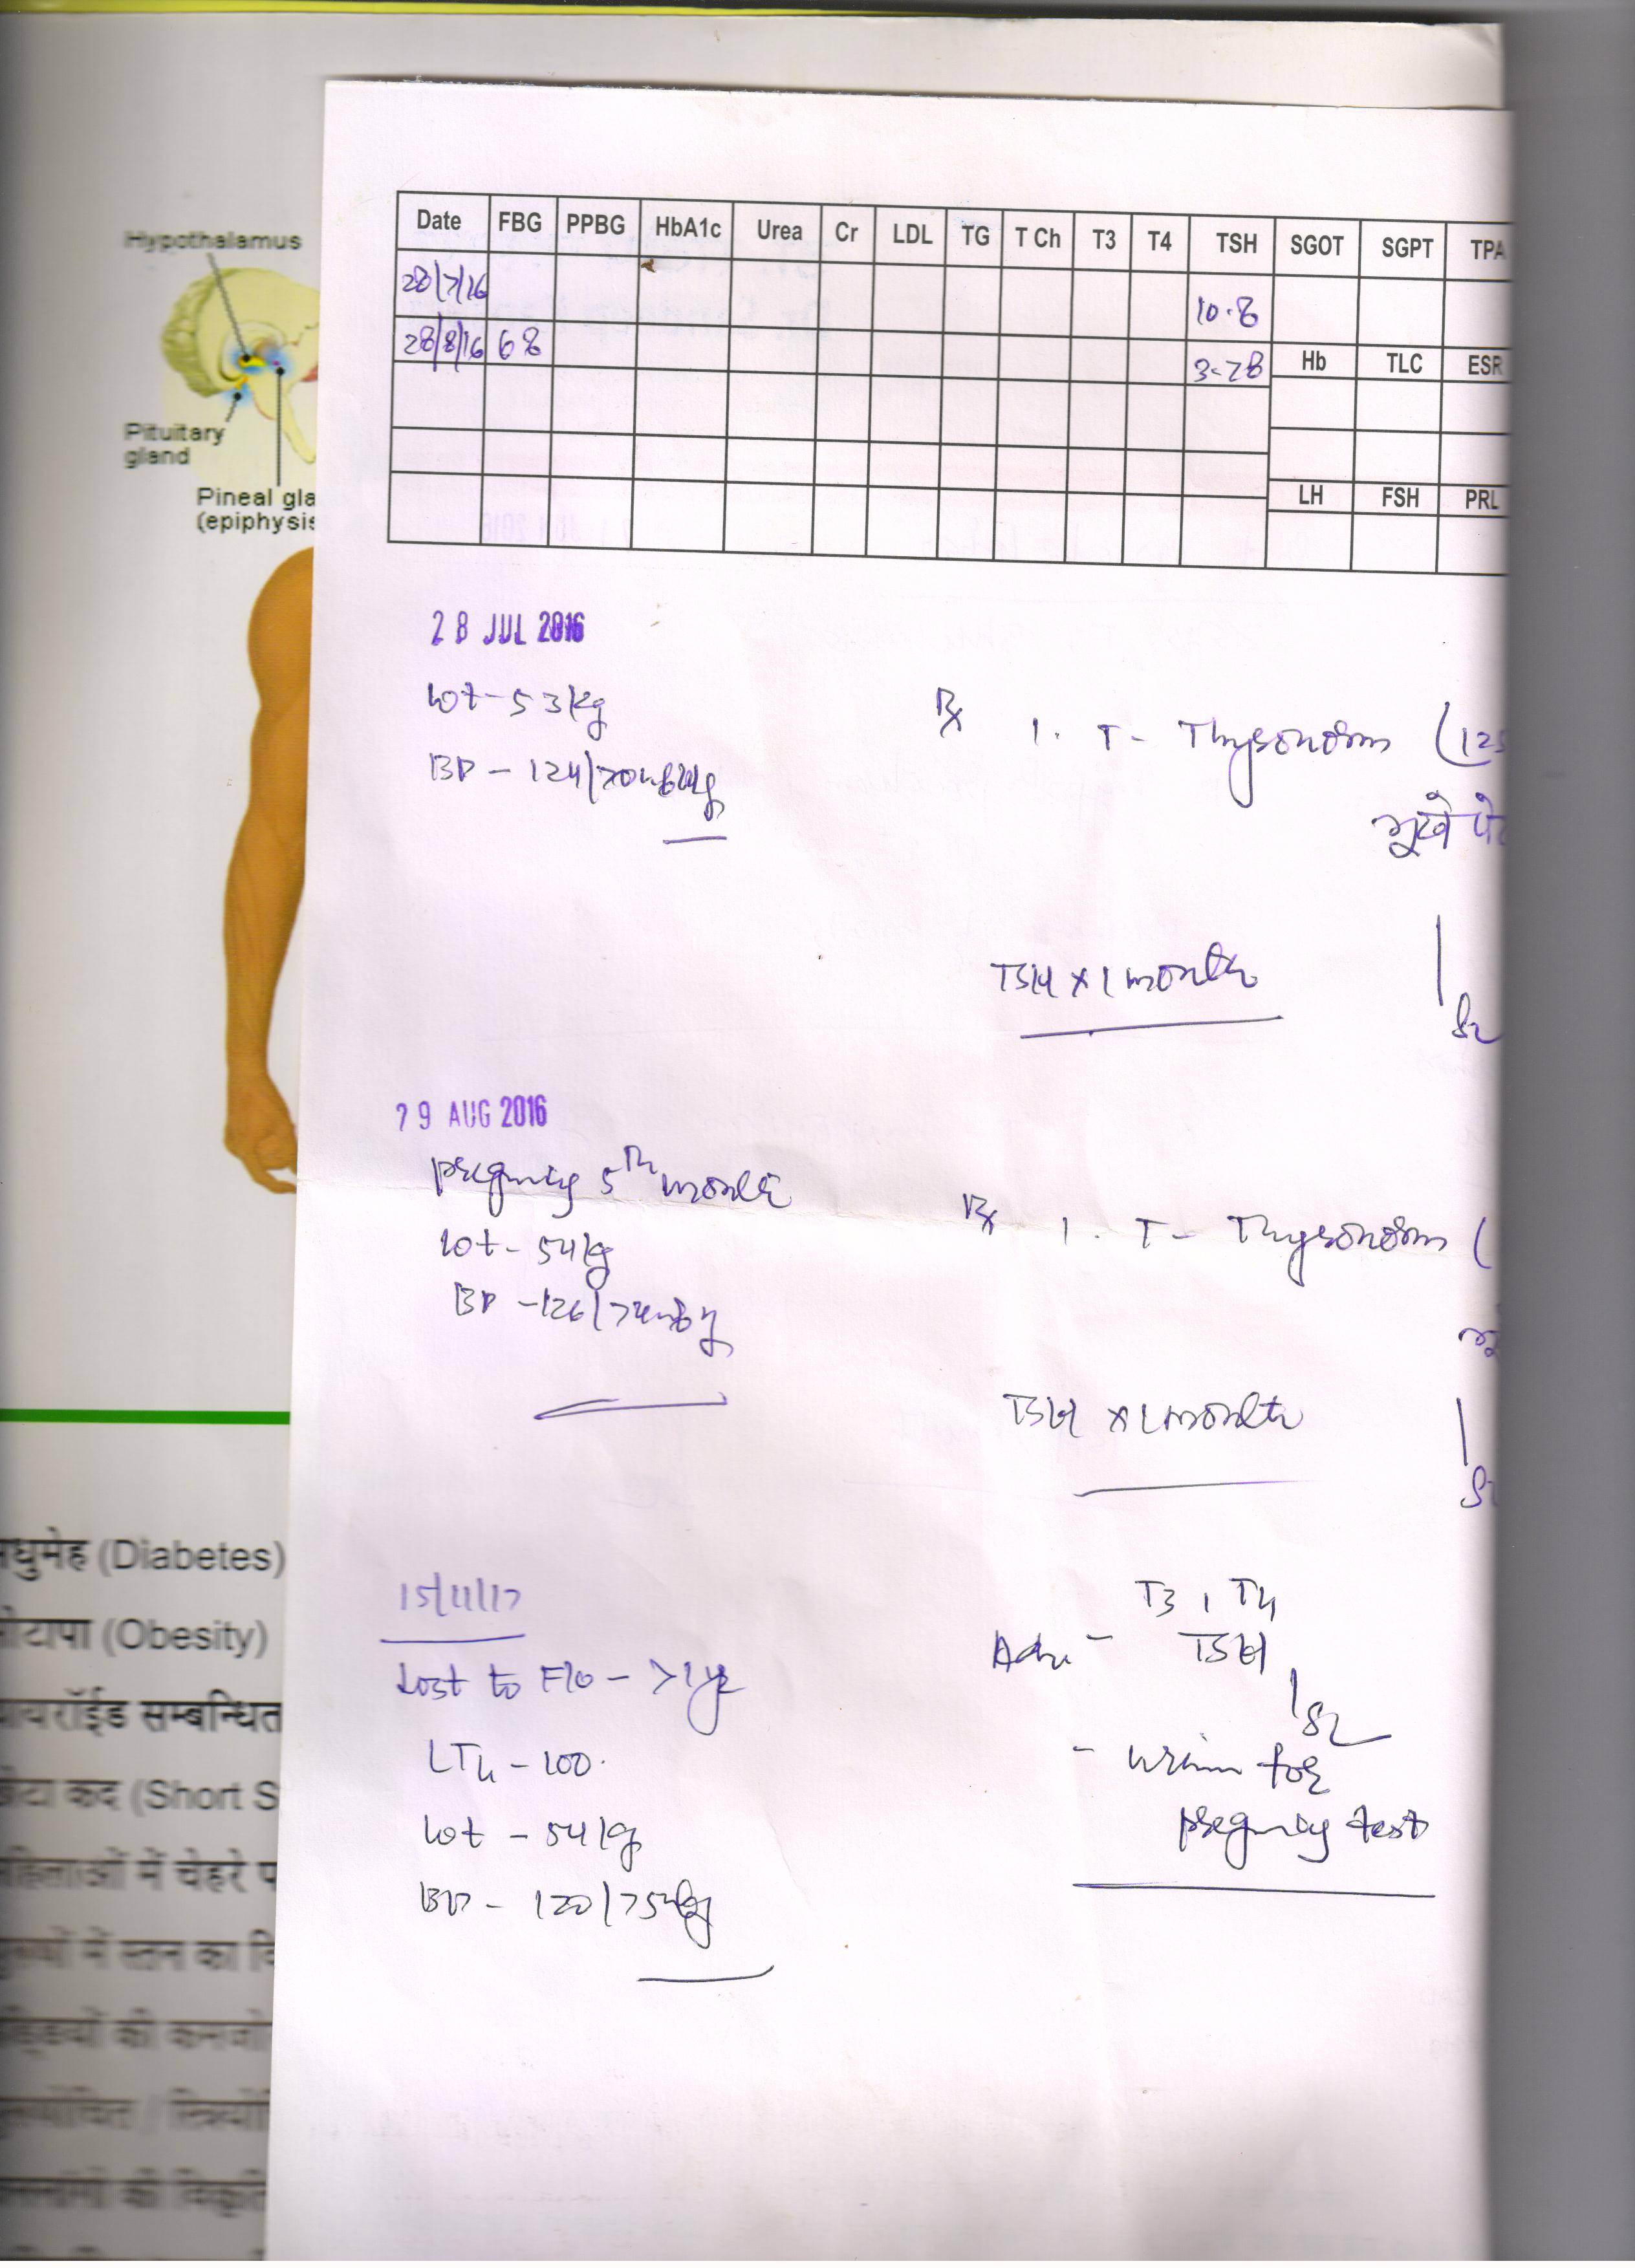 Hypothalamus
Pituitary
gland
Pineal gla
(epiphysis
Date FBG PPBG HbA1c Urea Cr LDL TG T Ch T3 T4 TSH SGOT SGPT TPA
28/7/16 10.8
28/8/16 68 3.28 Hb TLC ESR
LH FSH PRL
28 JUL 2016
Wt - 53kg
BP - 124/70mmHg
Rx 1. T- Thyronorm (125
भूखे पे
TSH x 1 month
29 AUG 2016
pregnancy 5th month
Wt - 54kg
BP - 126/74mmHg
Rx 1. T- Thyronorm (
TSH x 1 month
15/11/17
Lost to F/o - >1yr
LT4 - 100.
Wt - 54kg
BP - 120/75mmHg
T3, T4
Adv - TSH
- Urine for
pregnancy test
मधुमेह (Diabetes)
मोटापा (Obesity)
थायरॉईड सम्बन्धित
छोटा कद (Short S
महिलाओं में चेहरे प
पुरुषों में स्तन का वि